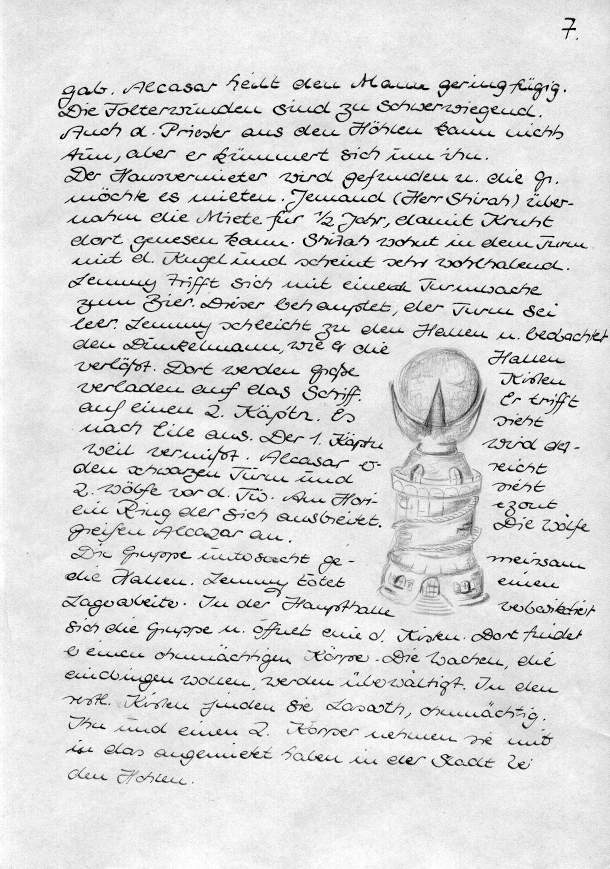 7.
gab. Alcasar heilt den Mann geringfügig.
Die Folterwunden sind zu schwerwiegend.
Auch d. Priester aus den Höhlen kann nichts
tun, aber er kümmert sich um ihn.
Der Hausvermieter wird gefunden u. die Gr.
möchte es mieten. Jemand (Herr Shirah) über-
nahm die Miete für 1/2 Jahr, damit
dort genesen kann. Shirah wohnt in dem Turm
mit d. Kugel und scheint sehr wohlhabend.
Lemmy trifft sich mit einer Turmwache
zum Bier. Dieser behauptet, der Turm sei
leer. Lemmy schleicht zu den Hallen u. beobachtet
den Dunkelmann, wie er die Hallen
verläßt. Dort werden große Kisten
verladen auf das Schiff. Er trifft
auf einen 2. Käptn. Es sieht
nach Eile aus. Der 1. Käptn wird der-
weil vermißt. Alcasar er- reicht
den schwarzen Turm und sieht
2 Wölfe vor d. Tür. Am Hori- zont
ein Ring der sich ausbreitet. Die Wölfe
greifen Alcazar an.
Die Gruppe untersucht ge- meinsam
die Hallen. Lemmy tötet einen
Lagerarbeiter. In der Haupthalle
sich die Gruppe u. öffnet eine d. Kisten. Dort findet
er einen ohnmächtigen Körper. Die Wachen, die
eindringen wollen, werden überwältigt. In den
restl. Kisten finden sie ohnmächtig.
Ihn und einen 2. Körper nehmen sie mit
in das angemietet haben in der Stadt bei
den Höhlen.